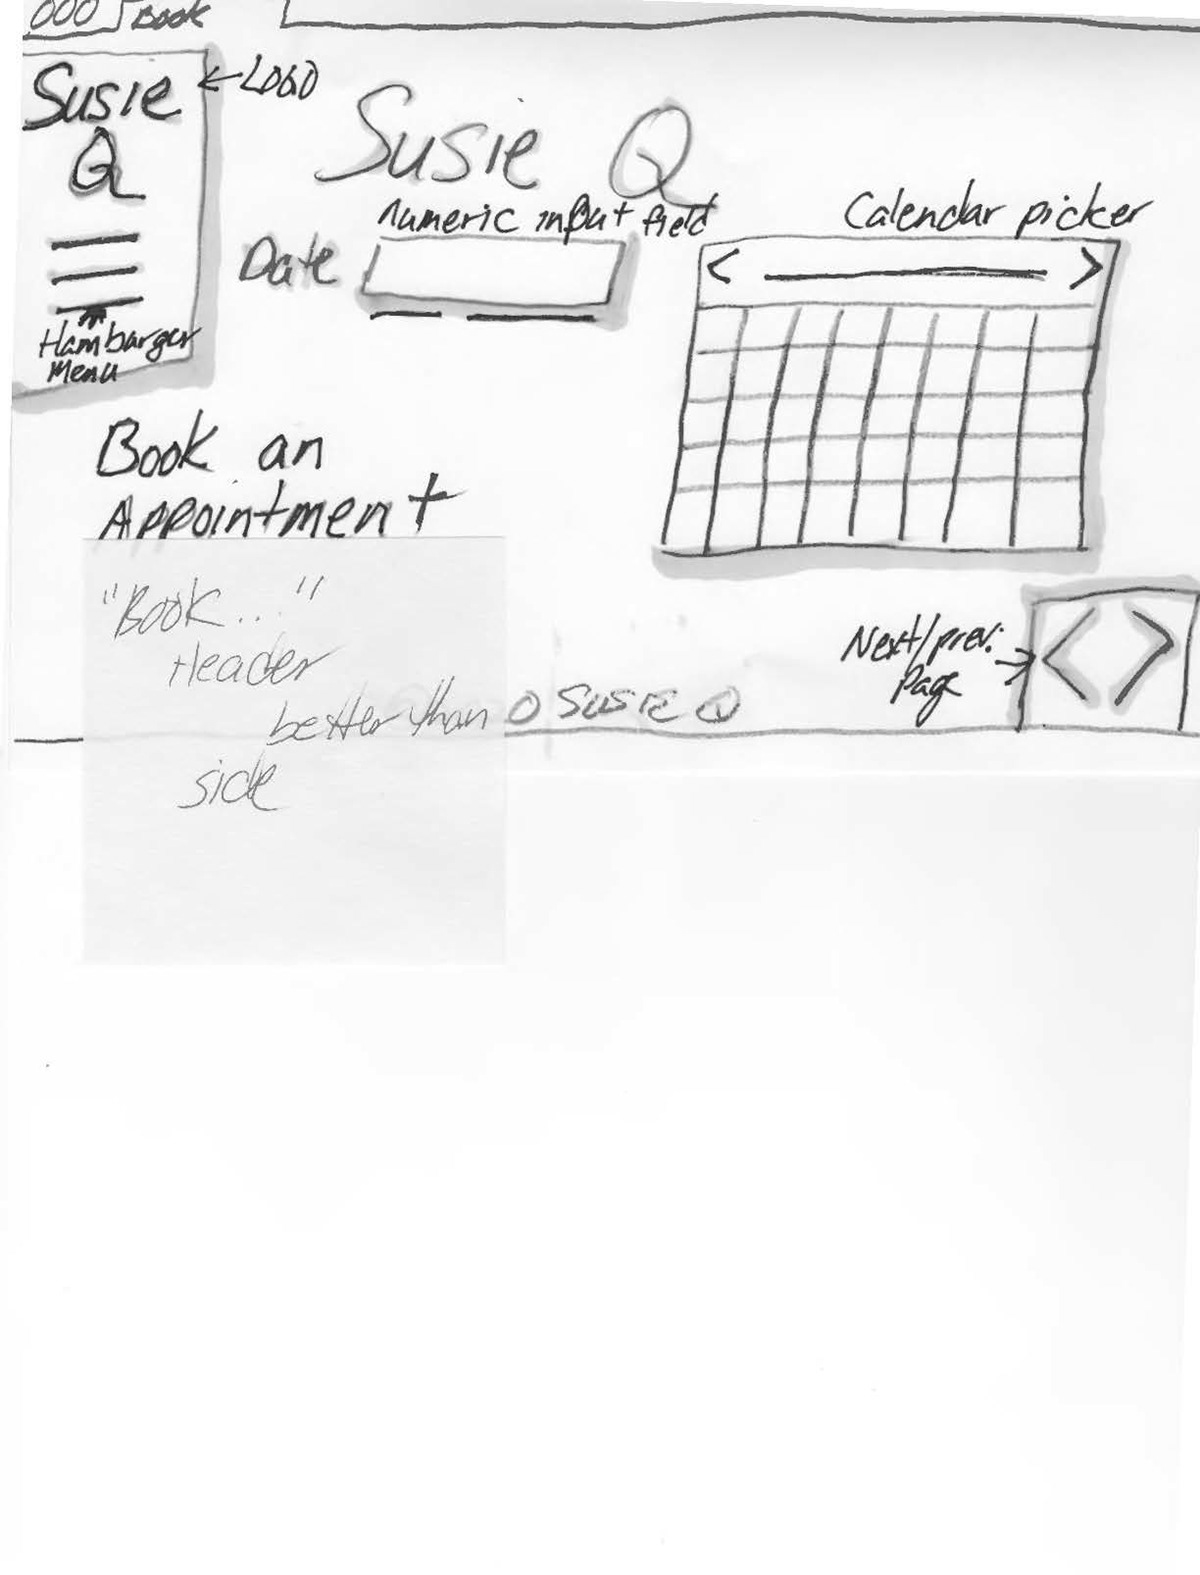 Book
Susie
Q
←LOGO
Hamburger
Menu
Susie Q
Numeric input field
Date
Calendar picker
< >
Book an
Appointment
"Book..."
Header
better than
side
© Susie Q
Next/prev.
Page
< >